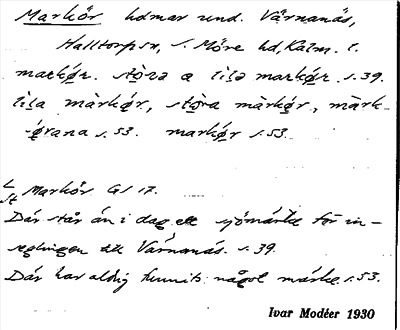 Markör hdmar und. Värnanäs,
Halltorp sn, S. Möre hd, Kalm. l.
markø̀r. stò̱ra a lìla markø̱r. s. 39.
lìla màrkø̱r, stò̱ra màrkø̱r, màrk-
-ø̱rana s. 53. markø̱r s. 53.
L St Markör GS 17.
Där står än i dag ett sjömärke för in-
seglingen till Värnanäs. s. 39.
Där har aldrig funnits något märke. s. 53.
Ivar Modéer 1930